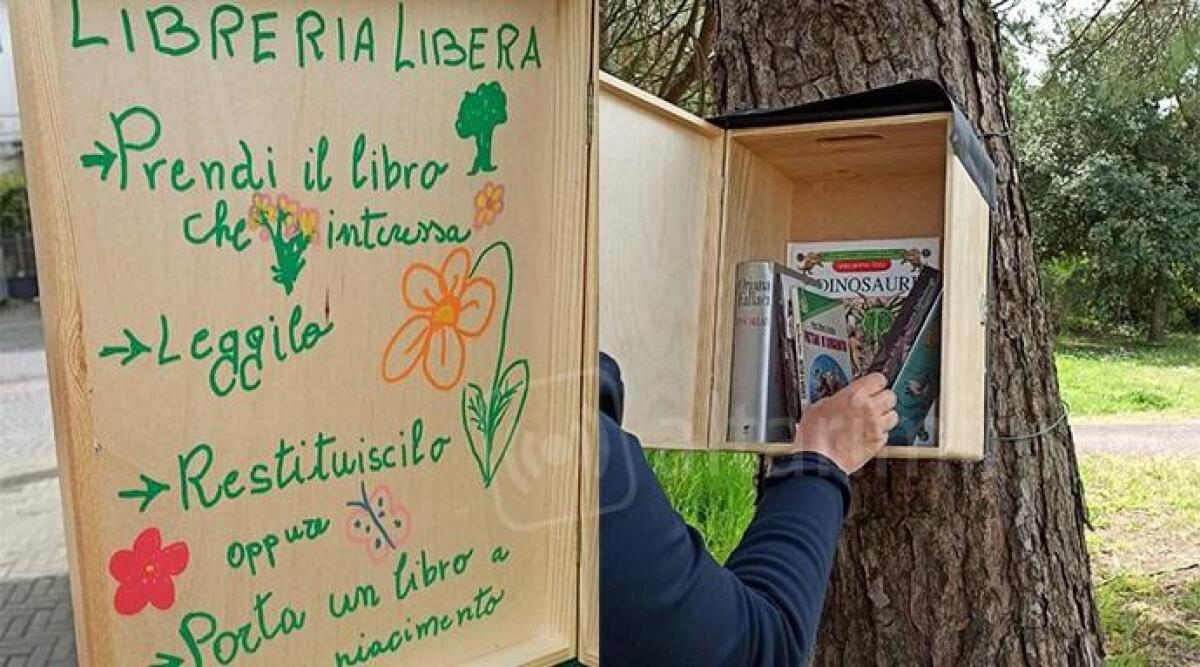 LIBRERIA LIBERA
→ Prendi il libro
che interessa
→ Leggilo
→ Restituiscilo
oppure
→ Porta un libro a
niacimento
Oriana
Fallaci
DINOSAURI